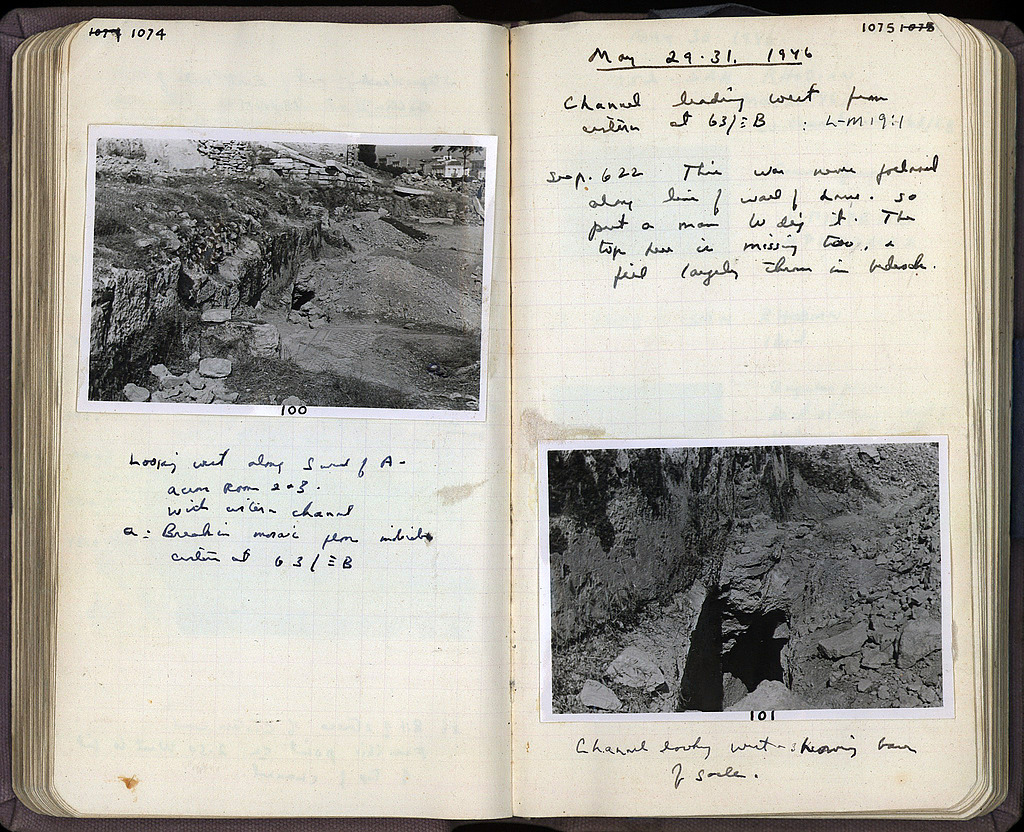 1074 1074
100
Looking west along S wall of A-
across Room 2 + 3.
with cistern channel
a: Break in mosaic floor
cistern at 63/ΞB
1075 1075
May 29-31, 1946
Channel leading west from
cistern at 63/ΞB : L-M 19:1
See p. 622 This was
along line of wall of house. So
put a man to dig it. The
top here is missing too, &
fill largely thrown in bedrock.
101
Channel looking west - showing
of scale.